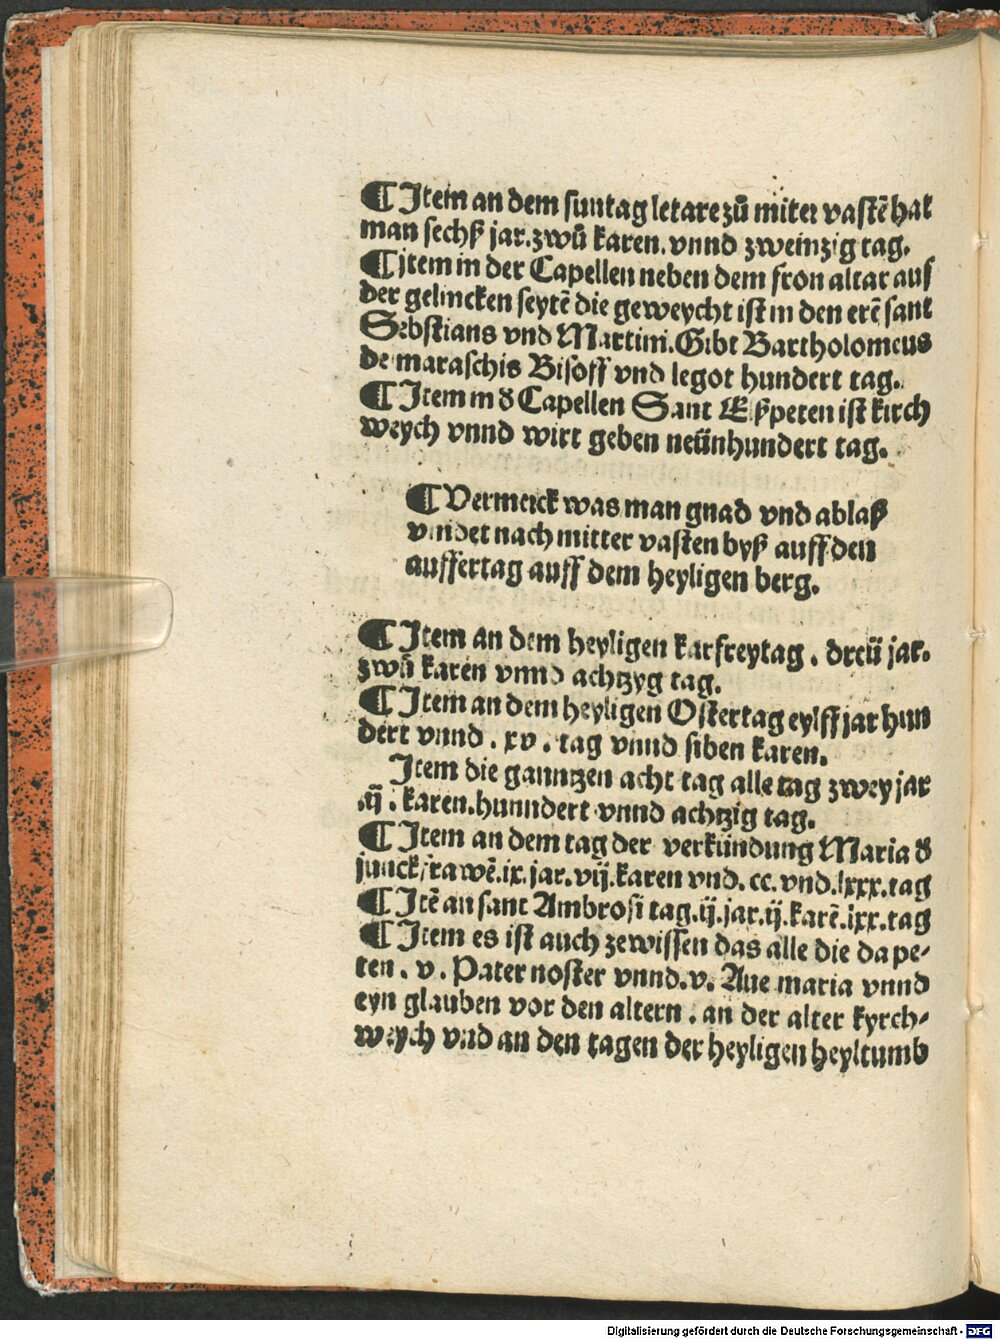 ¶ Jtem an dem suntag letare zů miter vastē hat
man sechß jar. zwů karen. vnnd zweinzig tag.
¶ jtem in der Capellen neben dem fron altar auf
der gelincken seytē die geweycht ist in den erē sant
Sebstians vnd Martini. Gibt Bartholomeus
de maraschis Bisoff vnd legot hundert tag.
¶ Jtem in d̄ Capellen Sant Elßpeten ist kirch
weych vnnd wirt geben neünhundert tag.
¶ Vermerck was man gnad vnd ablaß
vindet nach mitter vasten byß auff den
auffertag auff dem heyligen berg.
¶ Jtem an dem heyligen karfreytag. dreü jar.
zwů karen vnnd achtzyg tag.
¶ Jtem an dem heyligen Ostertag eylff jar hun
dert vnnd. xv. tag vnnd siben karen.
Jtem die ganntzen acht tag alle tag zwey jar
.ij. karen. hunndert vnnd achtzig tag.
¶ Jtem an dem tag der verkündung Maria d̄
junckfrawē. ix. jar. vij. karen vnd. cc. vnd. lxxx. tag
¶ Jtē an sant Ambrosi tag. ij. jar. ij. karē. lxx. tag
¶ Jtem es ist auch zewissen das alle die da pe-
ten. v. Pater noster vnnd. v. Aue maria vnnd
eyn glauben vor den altern. an der alter kyrch-
weych vnd an den tagen der heyligen heyltumb
Digitalisierung gefördert durch die Deutsche Forschungsgemeinschaft - DFG